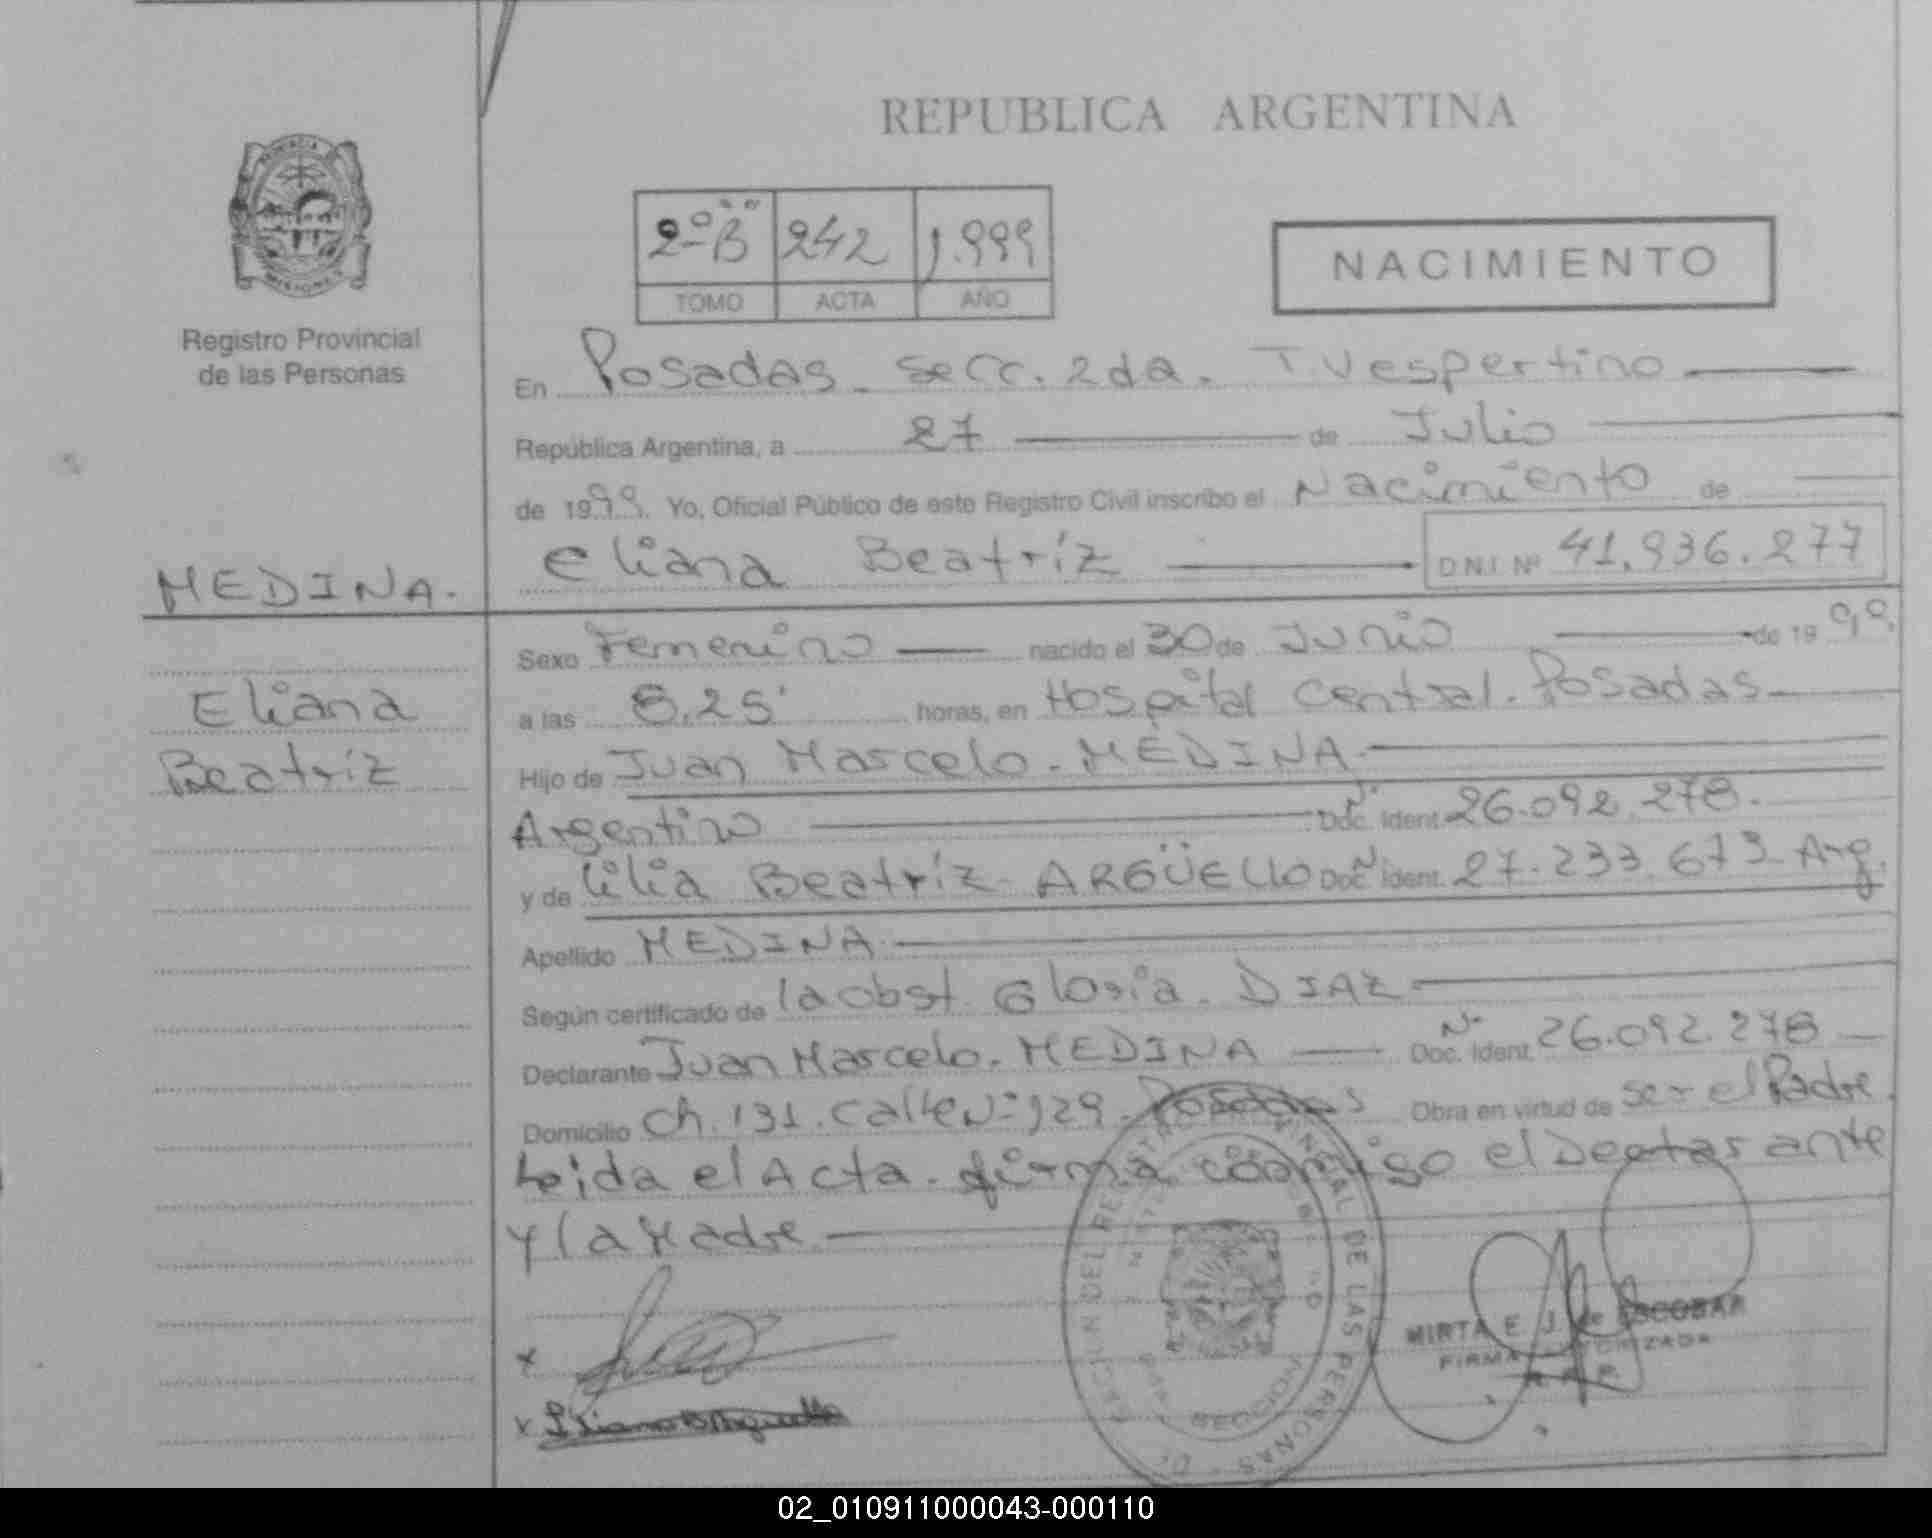 REPUBLICA ARGENTINA
PROVINCIA
MISIONES
Registro Provincial
de las Personas
2º B 242 1.999
TOMO ACTA AÑO
NACIMIENTO
En Posadas. secc. 2da. T. Vespertino
República Argentina, a 27 de Julio
de 1999. Yo, Oficial Público de este Registro Civil inscribo el Nacimiento de
Eliana Beatríz D.N.I. Nº 41.936.277
MEDINA.
Eliana
Beatríz
Sexo Femenino nacido el 30 de Junio de 19 99
a las 8.25' horas, en Hospital Central. Posadas
Hijo de Juan Marcelo. MEDINA
Argentino Nº Doc. Ident. 26.092.278.
y de Lilia Beatríz ARGÜELLO Nº Doc. Ident. 27.233.673 Arg.
Apellido MEDINA
Según certificado de la obst. Gloria. DIAZ
Declarante Juan Marcelo. MEDINA Nº Doc. Ident. 26.092.278
Domicilio Ch. 131. Calle Nº 129. Posadas Obra en virtud de ser el Padre.
Leida el Acta. firma conmigo el Declarante
y la Madre
x
x
DEL DE LAS PERSONAS
SECCION
MIRTA E. J. de ESCOBAR
FIRMA AUTORIZADA
R. P. P.
02_010911000043-000110